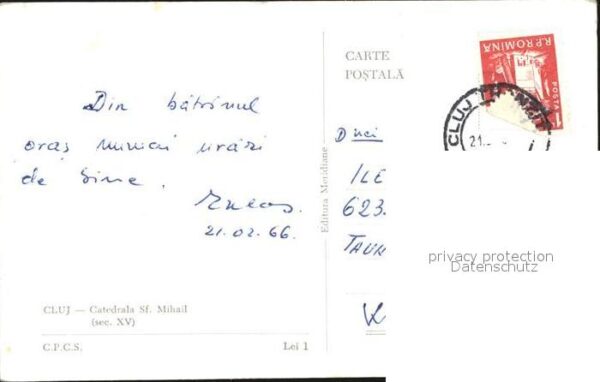 Din bătrînul
oraș numai urări
de bine.
21.02.66.
CLUJ — Catedrala Sf. Mihail
(sec. XV)
C.P.C.S.
Lei 1
Editura Meridiane
CARTE
POȘTALĂ
R.P.ROMÎNĂ
POSTA
CLUJ
21.
ILE
623.
TAUR
privacy protection
Datenschutz